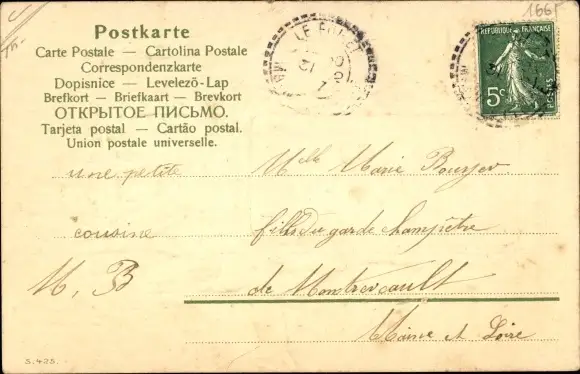 166F
Th.
Postkarte
Carte Postale — Cartolina Postale
Correspondenzkarte
Dopisnice — Levelezö-Lap
Brefkort — Briefkaart — Brevkort
ОТКРЫТОЕ ПИСЬМО.
Tarjeta postal — Cartão postal.
Union postale universelle.
LE
21
2
RÉPUBLIQUE FRANÇAISE
5c
POSTES
une petite
cousine
M, B
Melle Marie
fille du garde champêtre
de Montrevault
Maine et Loire
S. 425.